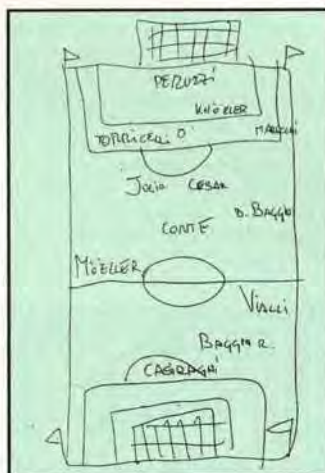 PERUZZI
KHÖELER
TORRICELLI
JULIO CESAR
D. BAGGIO
CONTE
MÖELLER
VIALLI
BAGGIO R.
CASIRAGHI